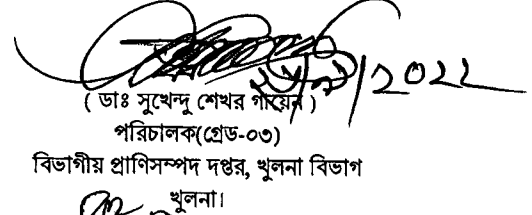 ২০২২
( ডাঃ সুখেন্দু শেখর গায়েন )
পরিচালক(গ্রেড-০৩)
বিভাগীয় প্রাণিসম্পদ দপ্তর, খুলনা বিভাগ
খুলনা।